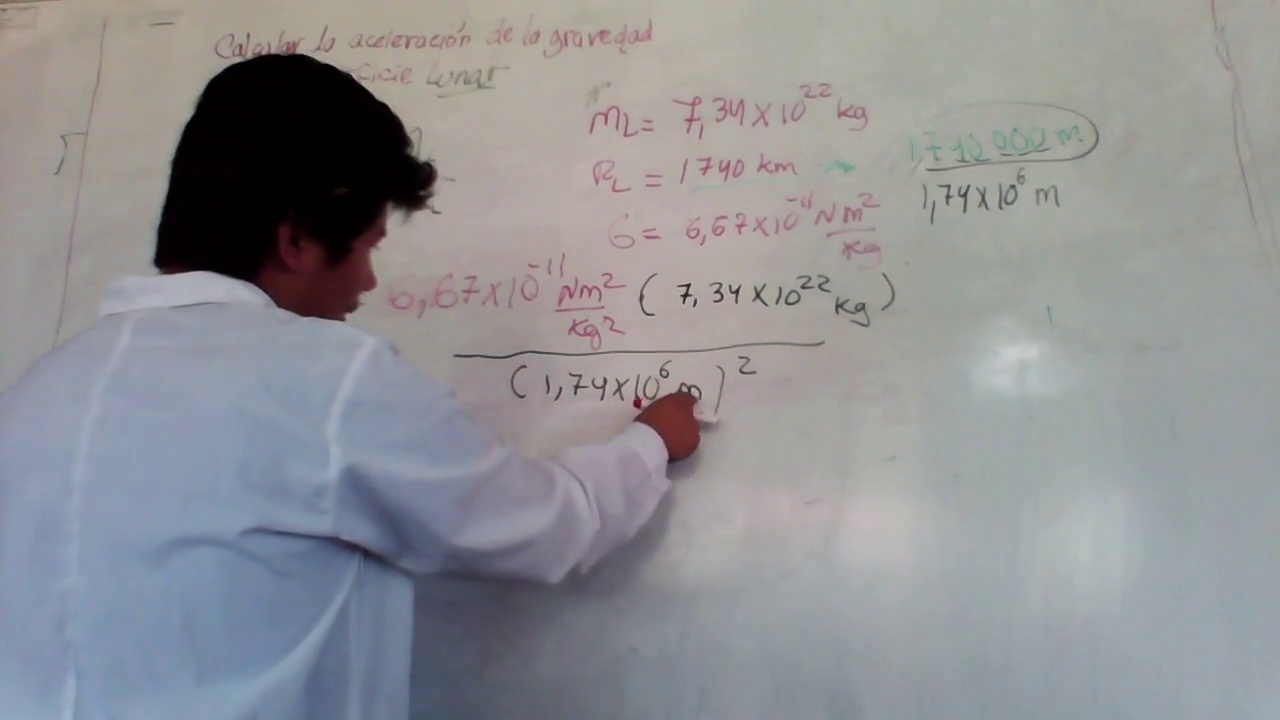 Calcular la aceleración de la gravedad
Lunar
mL = 7,34 x 10²² kg
RL = 1740 km
G = 6,67x10⁻¹¹ Nm²/kg
1,740 000 m
1,74x10⁶ m
6,67x10⁻¹¹ Nm²/kg² ( 7,34 x10²² kg )
( 1,74x10⁶ m )²